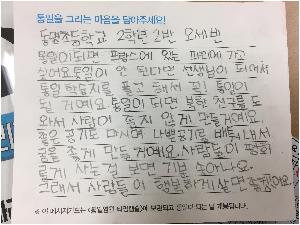 통일을 그리는 마음을 담아주세요!
동명초등학교 2학년 2반 오세빈
통일이되면 프랑스에 있는 파리에 가고
싶어요. 통일이 안 된다면 선생님이 되어서
통일 학습지를 풀고 해서 꼭! 통일이
될 거예요. 통일이 되면 북한 친구를 도
와서 사람이 죽지 않게 만들거예요.
좋은 공기도 마시며 나쁜공기를 배출내서
금을 쓸게 만들 거예요. 사람들이 평화
롭게 사는 걸 보면 기분 좋아나요.
그래서 사람들이 행복하게 살면 좋겠어요
※ 이 메시지카드는 <통일염원 타임캡슐>에 보관되고 통일이 되는 날 개봉됩니다.